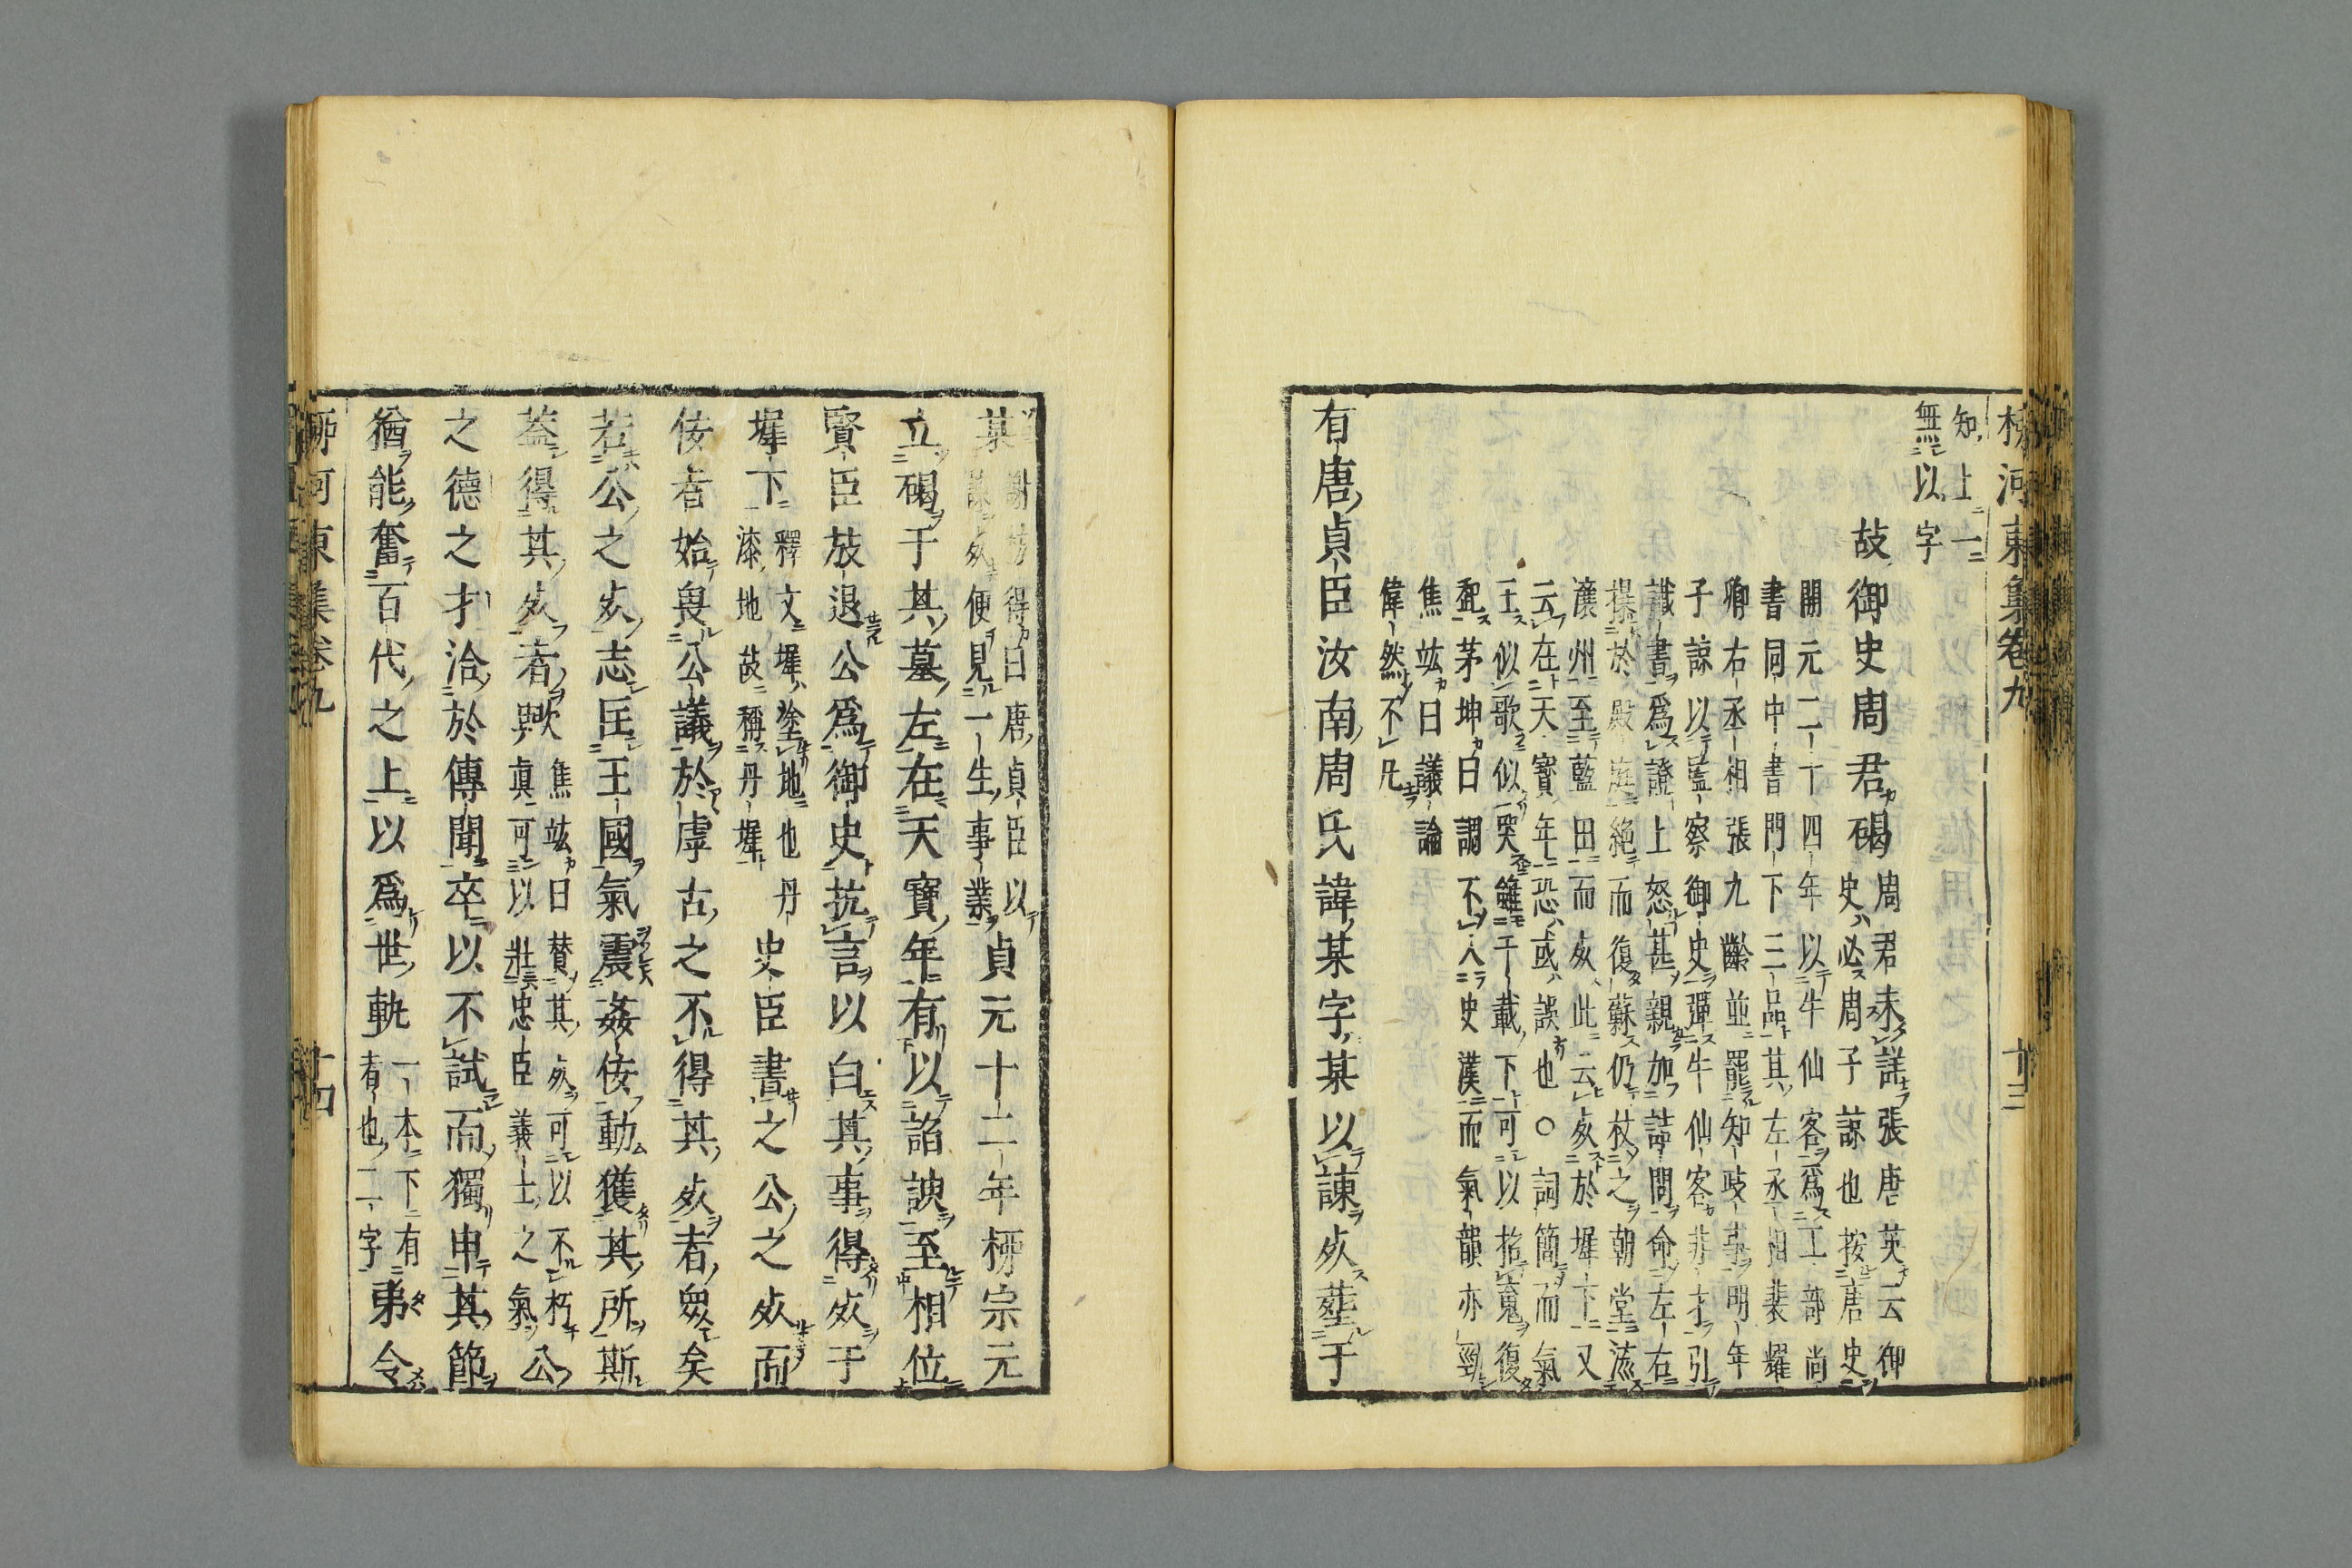 柳河東集卷九
十三
知上一
無以字
故御史周君碣
周君未詳張唐英云御
史必周子諒也按唐史
開元二十四年以牛仙客爲工部尚
書同中書門下三品其左丞相裴耀
卿右丞相張九齡並罷知政事明年
子諒以監察御史彈牛仙客非才引
讖書爲證上怒甚親加詰問命左右
㩧於殿庭絕而復蘇仍杖之朝堂流
瀼州至藍田而死此云死於墀下又
云在天寶年恐或誤也○詞簡而氣
王似歌似哭雖千載下可以招䰟復
魂茅坤曰謂不入史漢而氣韻亦勁
焦竑曰議論
偉然不凡
有唐貞臣汝南周氏諱某字某以諫死葬于
某
謝枋得曰唐貞臣以
諫死便見一生事業
貞元十二年柳宗元
立碣于其墓左在天寶年有以諂諛至相位
賢臣放退公爲御史抗言以白其事得死于
墀下
釋文墀塗地也丹
漆地故稱丹墀
史臣書之公之死而
佞者始畏公議於虖古之不得其死者衆矣
若公之死志匡王國氣震姦佞動獲其所斯
蓋得其死者歟
焦竑曰賛其死可以不朽
眞可以壯忠臣義士之氣
公
之德之才洽於傳聞卒以不試而獨申其節
猶能奮百代之上以爲世軌
一本下有
者也二字
弟令
柳河東集卷九
十四